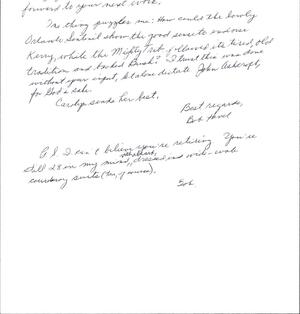 forward to your next ….
One thing puzzles me. How could the lowly
Orlando Sentinel show the good sense to endorse
Kerry, while the Mighty Trib followed its tired, old
tradition and backed Bush? I trust this was done
without your input, let alone dictate John Ashcroft,
for God's sake.
Carolyn sends her best.
Best regards,
Bob
P.S. I can't believe you're retiring. You're
still 28 in my mind, dressed in wide-wale
corduroy suits (tan, of course).
Bob